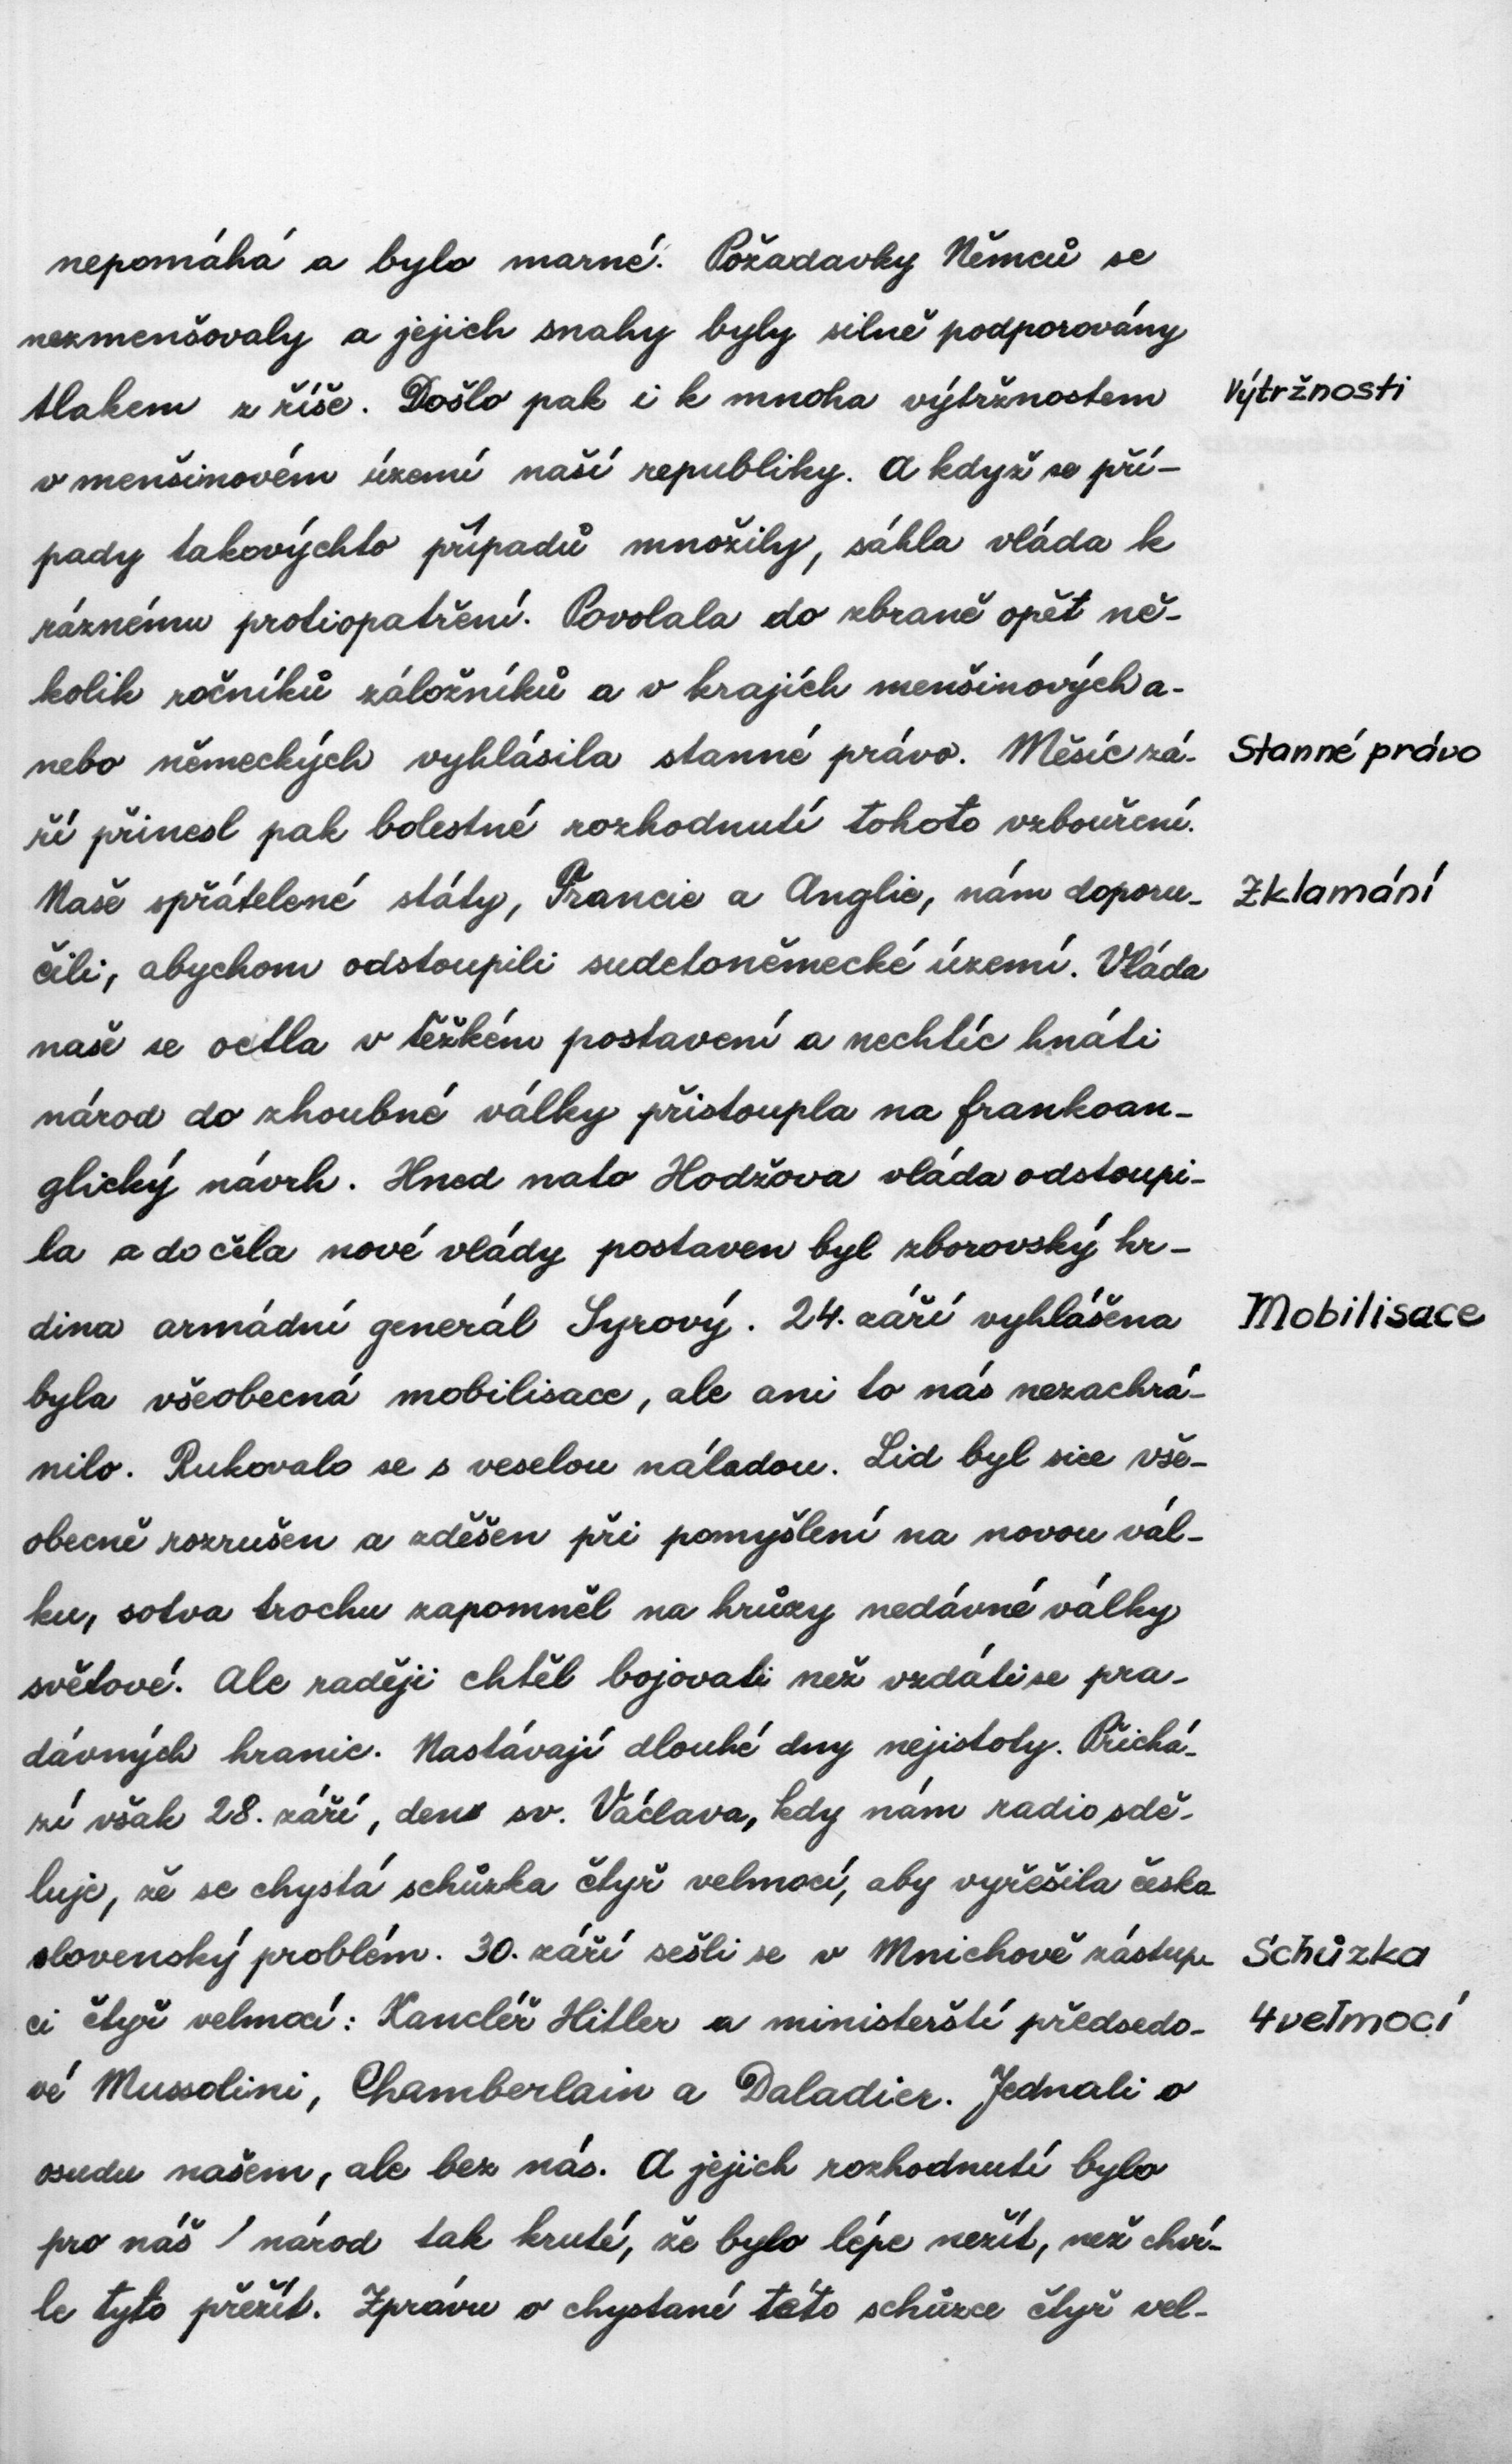 nepomáhá a bylo marné. Požadavky Němců se
nezmenšovaly a jejich snahy byly silně podporovány
tlakem z říše. Došlo pak i k mnoha výtržnostem
Výtržnosti
v menšinovém území naší republiky. A když se pří-
pady takovýchto případů množily, sáhla vláda k
ráznému protiopatření. Povolala do zbraně opět ně-
kolik ročníků záložníků a v krajích menšinových a-
nebo německých vyhlásila stanné právo. Měsíc zá-
Stanné právo
ří přinesl pak bolestné rozhodnutí tohoto vzbouření.
Naše spřátelené státy, Francie a Anglie, nám doporu-
Zklamání
čili, abychom odstoupili sudetoněmecké území. Vláda
naše se octla v těžkém postavení a nechtíc hnáti
národ do zhoubné války přistoupla na frankoan-
glický návrh. Hned nato Hodžova vláda odstoupi-
la a do čela nové vlády postaven byl zborovský hr-
dina armádní generál Syrový. 24. září vyhlášena
Mobilisace
byla všeobecná mobilisace, ale ani to nás nezachrá-
nilo. Rukovalo se s veselou náladou. Lid byl sice vše-
obecně rozrušen a zděšen při pomyšlení na novou vál-
ku, sotva trochu zapomněl na hrůzy nedávné války
světové. Ale raději chtěl bojovati než vzdáti se pra-
dávných hranic. Nastávají dlouhé dny nejistoty. Přichá-
zí však 28. září, den sv. Václava, kdy nám radio sdě-
luje, že se chystá schůzka čtyř velmocí, aby vyřešila česko
slovenský problém. 30. září sešli se v Mnichově zástup-
Schůzka
ci čtyř velmocí: Kancléř Hitler a ministerští předsedo-
4 velmocí
vé Mussolini, Chamberlain a Daladier. Jednali o
osudu našem, ale bez nás. A jejich rozhodnutí bylo
pro náš / národ tak kruté, že bylo lépe nežít, než chví-
le tyto přežít. Zprávu o chystané této schůzce čtyř vel-